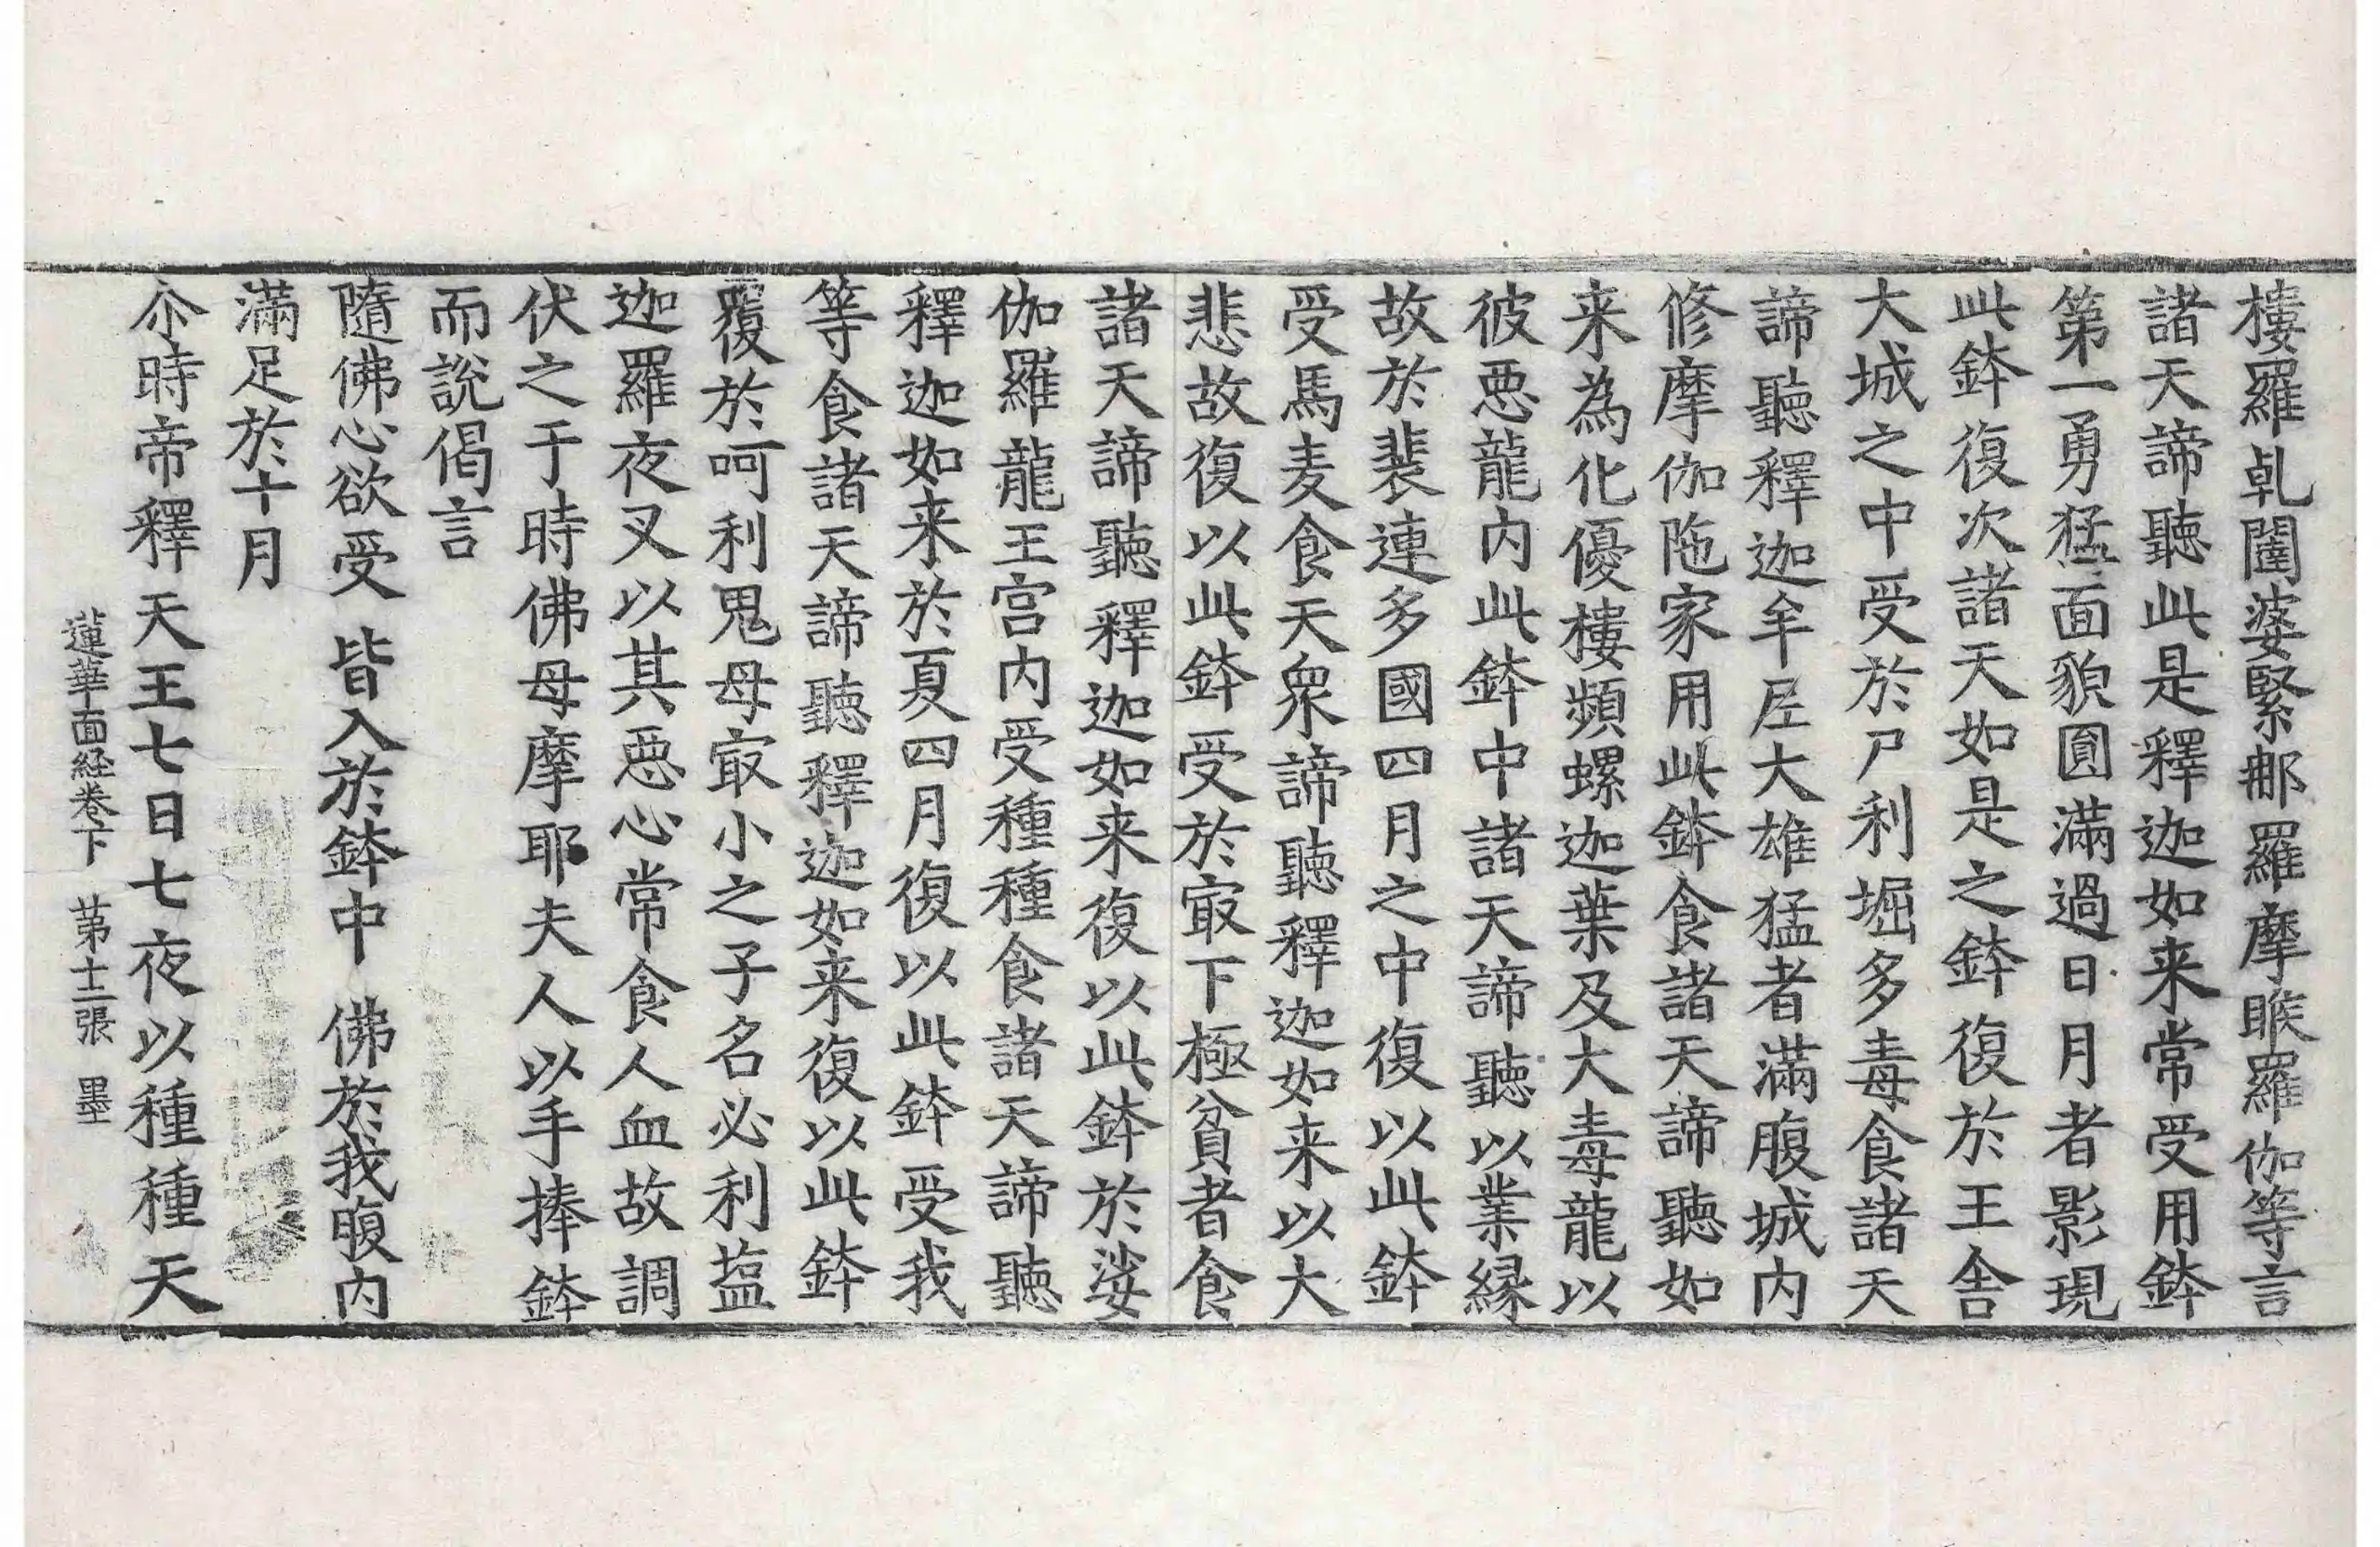 樓羅乹闥婆緊那羅摩睺羅伽等言
諸天諦聽此是釋迦如来常受用鉢
第一勇猛面貌圓滿過日月者影現
此鉢復次諸天如是之鉢復於王舍
大城之中受於尸利堀多毒食諸天
諦聽釋迦牟𡰱大雄猛者滿腹城内
修摩伽陁家用此鉢食諸天諦聽如
来為化優樓頻螺迦葉及大毒龍以
彼惡龍内此鉢中諸天諦聽以業緣
故於裴連多國四月之中復以此鉢
受馬麦食天衆諦聽釋迦如来以大
悲故復以此鉢受於㝡下極貧者食
諸天諦聽釋迦如来復以此鉢於娑
伽羅龍王宮内受種種食諸天諦聽
釋迦如来於夏四月復以此鉢受我
等食諸天諦聽釋迦如来復以此鉢
覆於呵利鬼母㝡小之子名必利䀋
迦羅夜叉以其惡心常食人血故調
伏之于時佛母摩耶夫人以手捧鉢
而說偈言
隨佛心欲受　皆入於鉢中　佛於我腹内
滿足於十月
尒時帝釋天王七日七夜以種種天
蓮華面経卷下　第十二張　墨